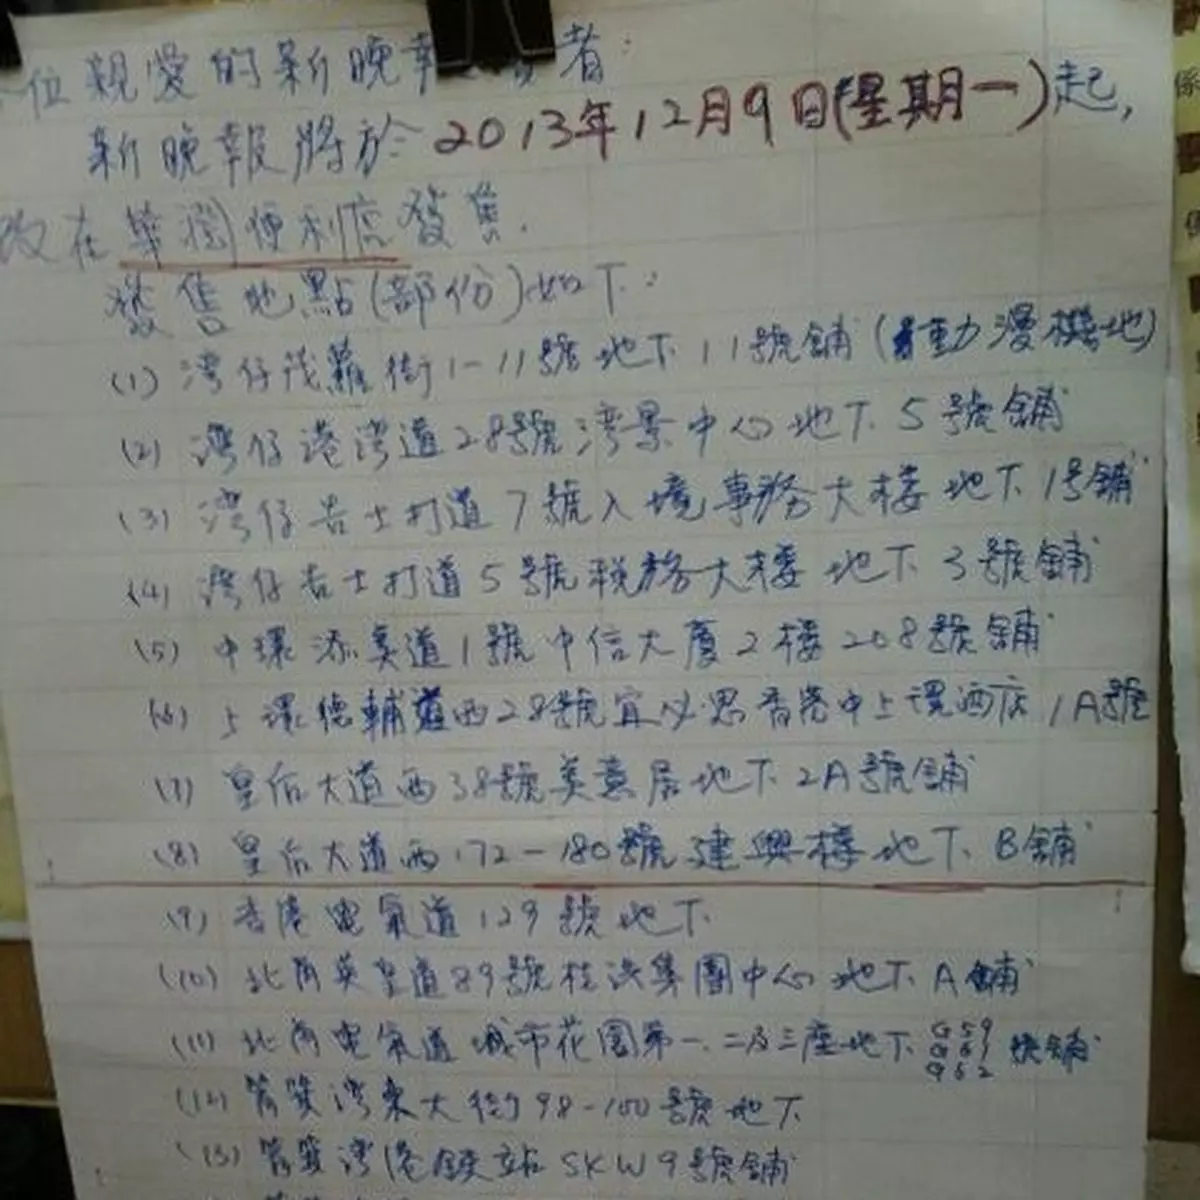 位親愛的新晚報讀者:
新晚報將於 2013年12月9日(星期一)起,
改在華潤便利店發售.
發售地點(部份)如下:
(1) 灣仔茂蘿街1-11號地下11號舖(動漫基地)
(2) 灣仔港灣道28號灣景中心地下5號舖
(3) 灣仔告士打道7號入境事務大樓地下1号舖
(4) 灣仔告士打道5號稅務大樓地下3號舖
(5) 中環添美道1號中信大廈2樓208號舖
(6) 上環德輔道西28號宜必思香港中上環酒店1A號
(7) 皇后大道西38號美意居地下2A號舖
(8) 皇后大道西172-180號建興樓地下B舖
(9) 香港電氣道129號地下
(10) 北角英皇道89號桂洪集團中心地下A舖
(11) 北角電氣道城市花園第一、二及三座地下 G59 G61 G62 號舖
(12) 筲箕灣東大街98-100號地下
(13) 筲箕灣港鐵站SKW9號舖
係